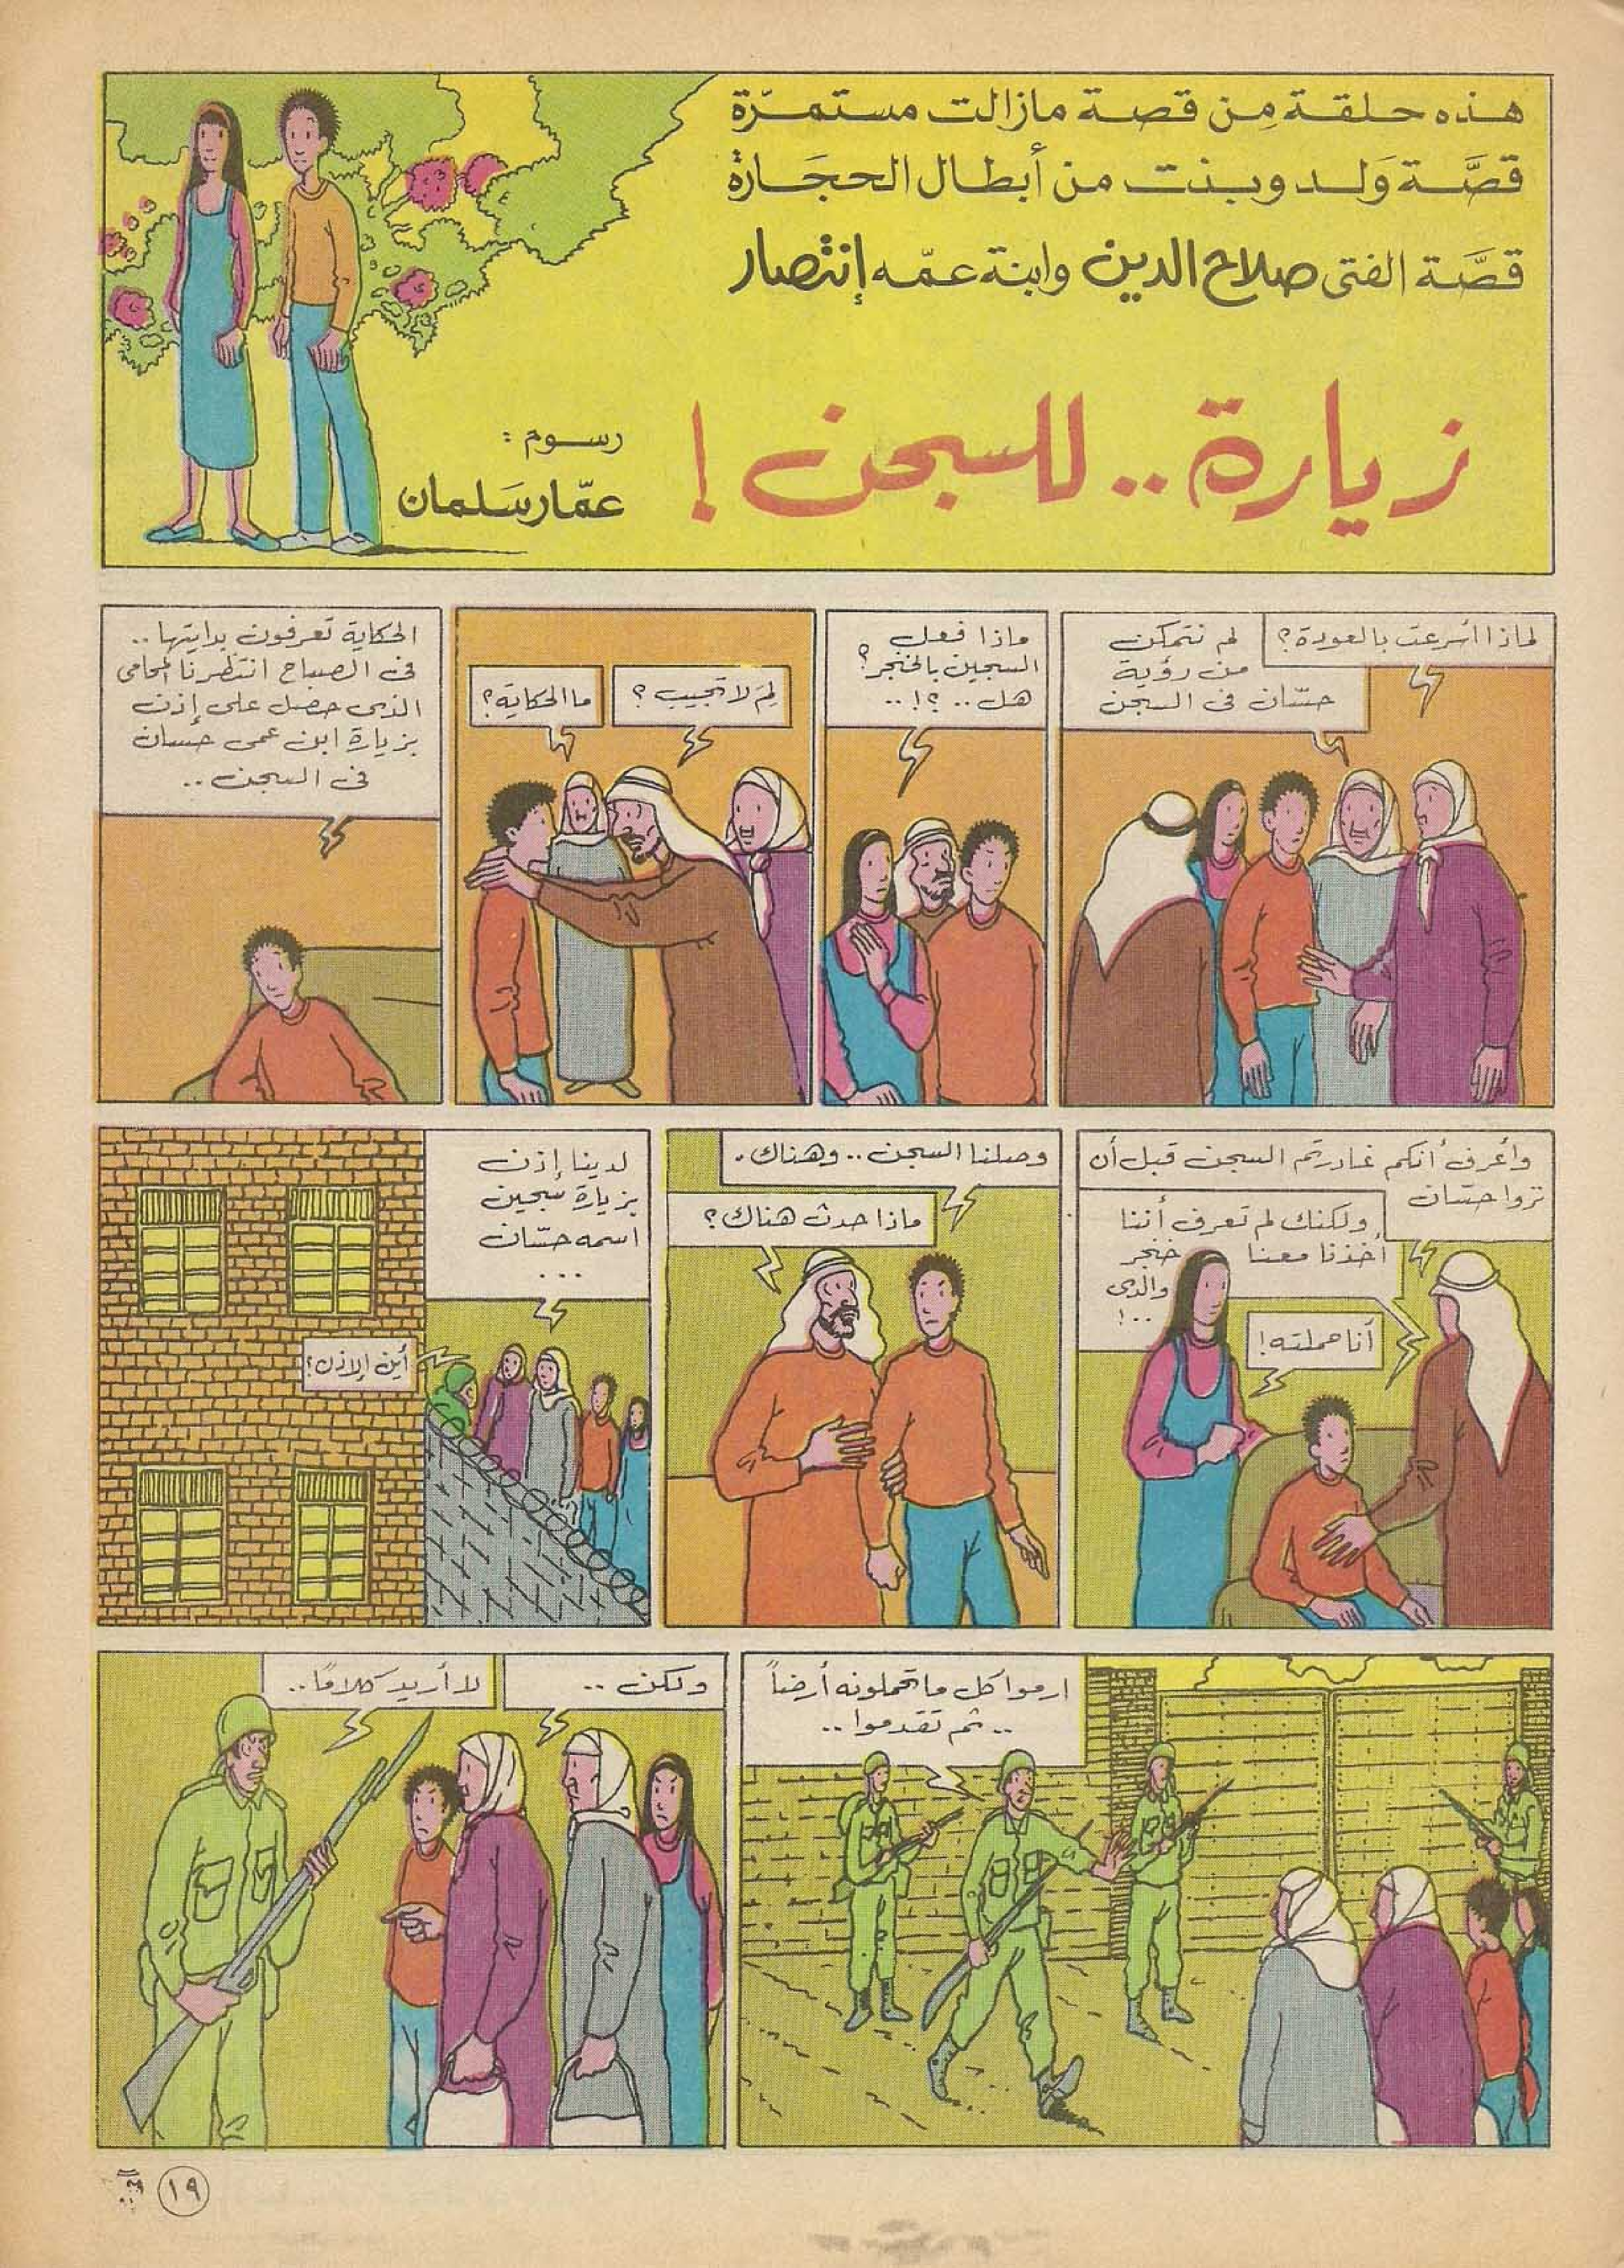 هذه حلقة من قصة مازالت مستمرّة
قصَّة وَلد وبنت من أبطال الحجَارة
قصَّة الفتى صلاح الدين وابنة عمّه إنتصار
زيارة .. للسجن !
رسوم :
عمّار سَلمان
لماذا أسرعت بالعودة ؟
لم نتمكن
من رؤية
حسّان فى السجن
ماذا فعل
السجين بالخنجر ؟
هل .. ؟! ..
لِمَ لا تجيب ؟
ما الحكاية ؟
الحكاية تعرفون بدايتها ..
فى الصباح انتظرنا المحامى
الذى حصل على إذن
بزيارة ابن عمى حسان
فى السجن ..
وأعرف أنكم غادرتم السجن قبل أن
تروا حسّان
ولكنك لم تعرف أننا
أخذنا معنا خنجر
والدى
.. !
أنا حملته !
وصلنا السجن .. وهناك .
ماذا حدث هناك ؟
لدينا إذن
بزيارة سجين
اسمه حسّان
...
أين الإذن ؟
ارموا كل ما تحملونه أرضاً
.. ثم تقدموا ..
ولكن ..
لا أريد كلامًا ..
١٩